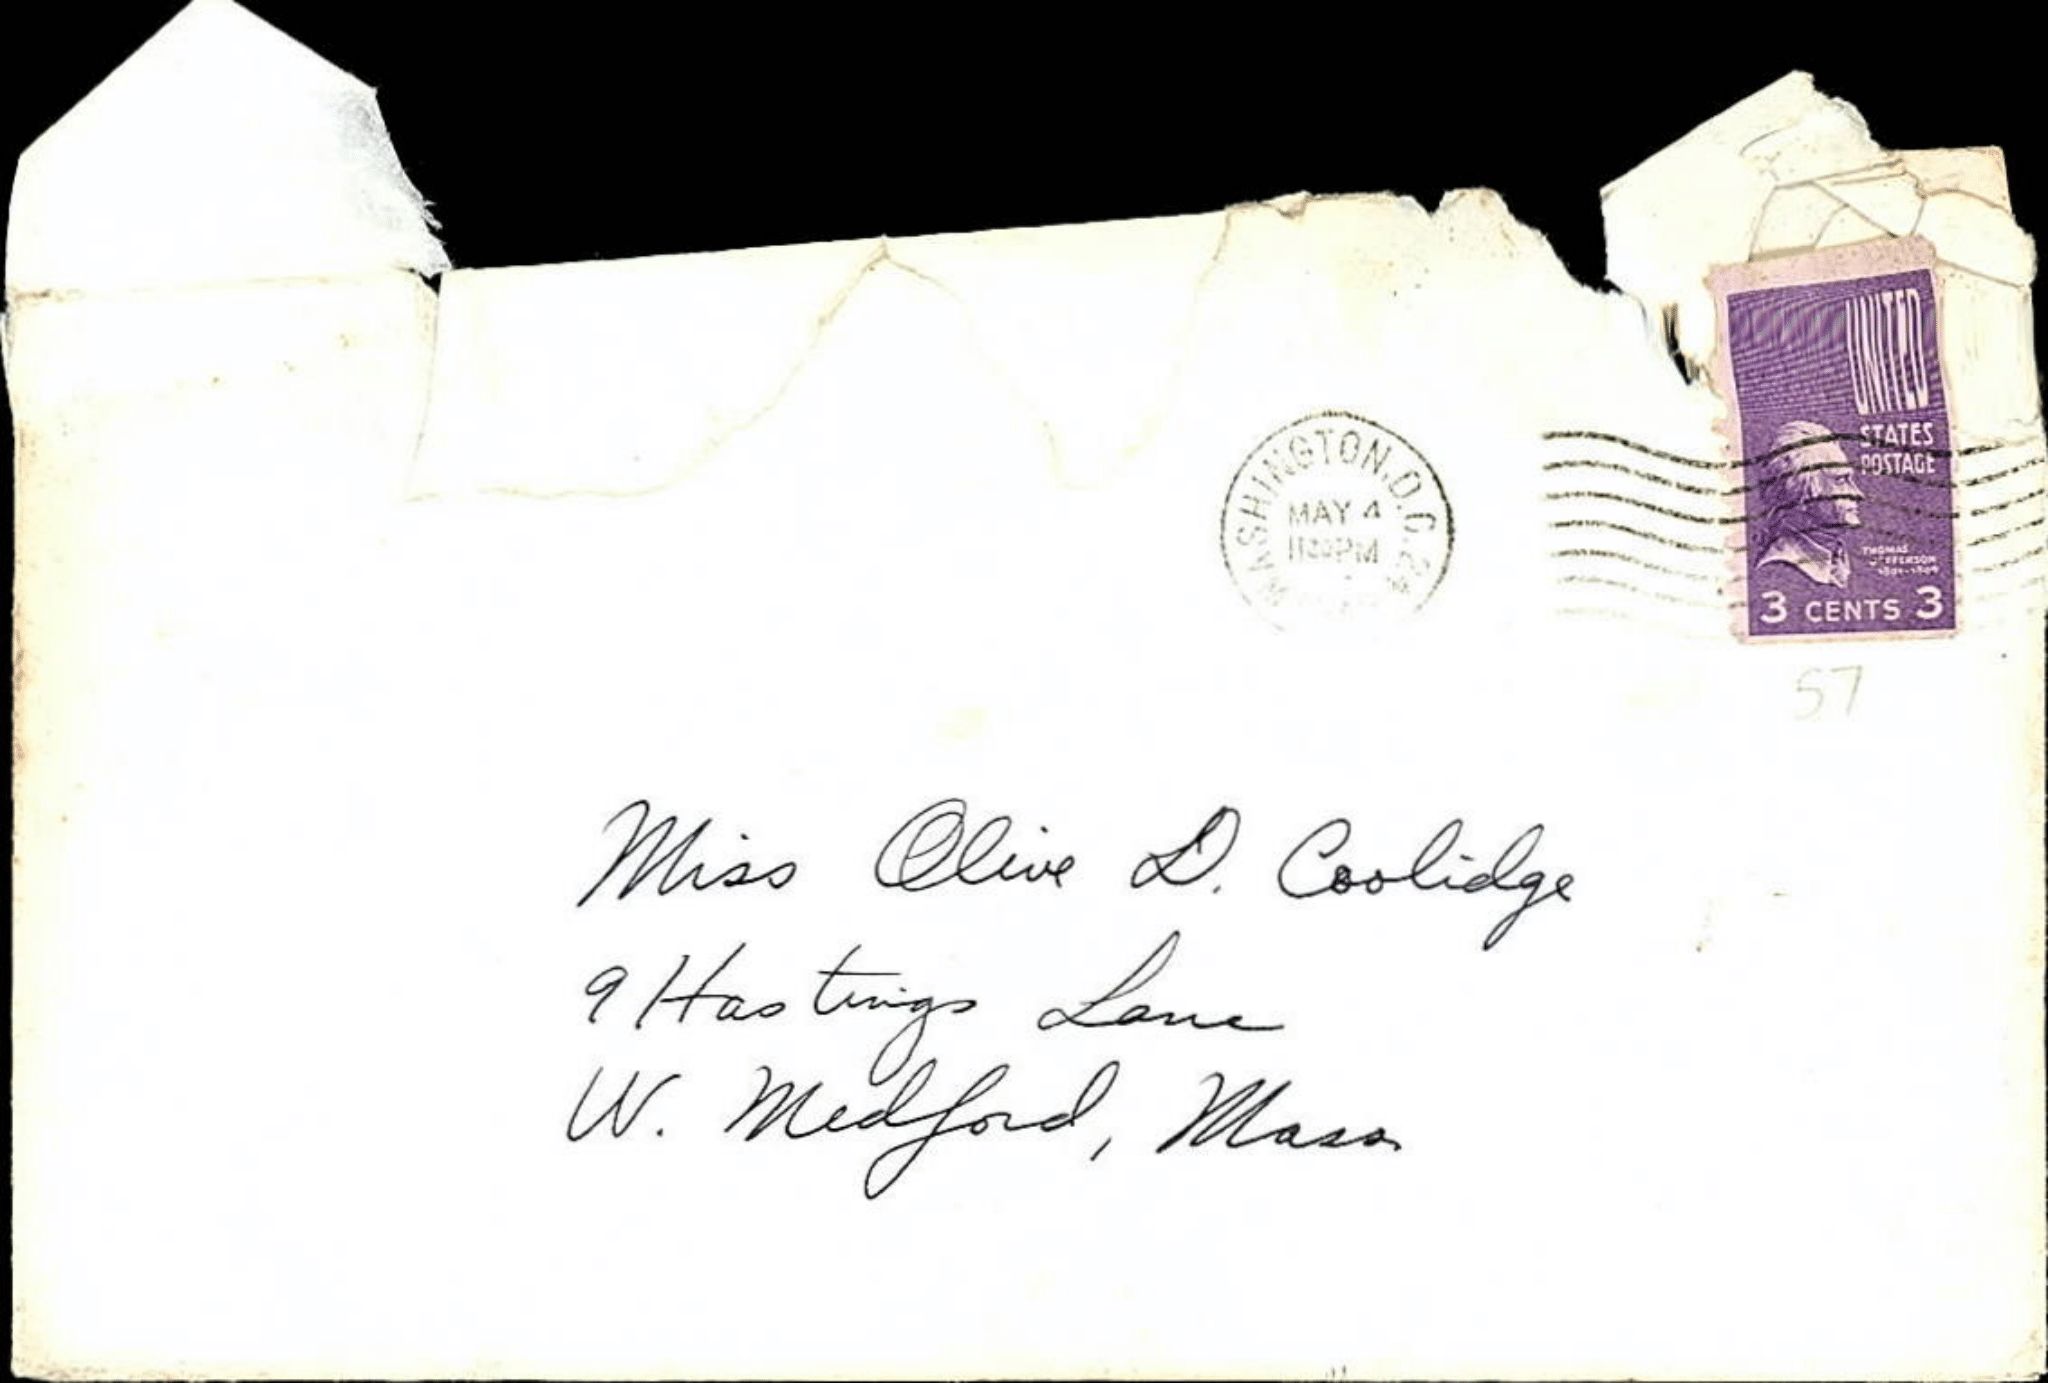 WASHINGTON, D.C.
MAY 4
PM
UNITED
STATES
POSTAGE
THOMAS
JEFFERSON
1801-1809
3 CENTS 3
57
Miss Olive D. Coolidge
9 Hastings Lane
W. Medford, Mass